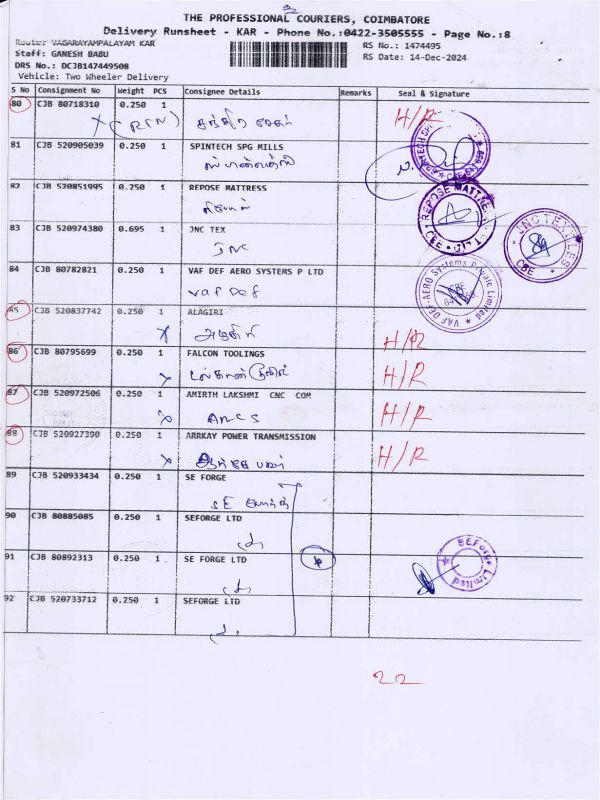 THE PROFESSIONAL COURIERS, COIMBATORE
Delivery Runsheet - KAR - Phone No.:0422-3505555 - Page No.:8
Router VAGARAYAMPALAYAM KAR
Staff: GANESH BABU
DRS No.: DCJB147449508
Vehicle: Two Wheeler Delivery
RS No.: 1474495
RS Date: 14-Dec-2024
S No Consignment No Weight PCS Consignee Details Remarks Seal & Signature
80 CJB 80718310 0.250 1 H/R
X (RTN)
81 CJB 520905039 0.250 1 SPINTECH SPG MILLS
82 CJB 520851995 0.250 1 REPOSE MATTRESS
REPOSE MATTRE
CBE
83 CJB 520974380 0.695 1 JNC TEX
JNC
JNC TEXTILES
CBE
84 CJB 80782821 0.250 1 VAF DEF AERO SYSTEMS P LTD
VAF Def
VAF DEF-AERO Systems Private Limited
CBE
85 CJB 520837742 0.250 1 ALAGIRI
X அழகிரி H/R
86 CJB 80795699 0.250 1 FALCON TOOLINGS
X H/R
87 CJB 520972506 0.250 1 AMIRTH LAKSHMI CNC COM
X H/R
88 CJB 520927390 0.250 1 ARRKAY POWER TRANSMISSION
X ஆர்கே பவர் H/R
89 CJB 520933434 0.250 1 SE FORGE
SE போர்ஜ்
90 CJB 80885085 0.250 1 SEFORGE LTD
91 CJB 80892313 0.250 1 SE FORGE LTD
SEForge Limited
92 CJB 520733712 0.250 1 SEFORGE LTD
22